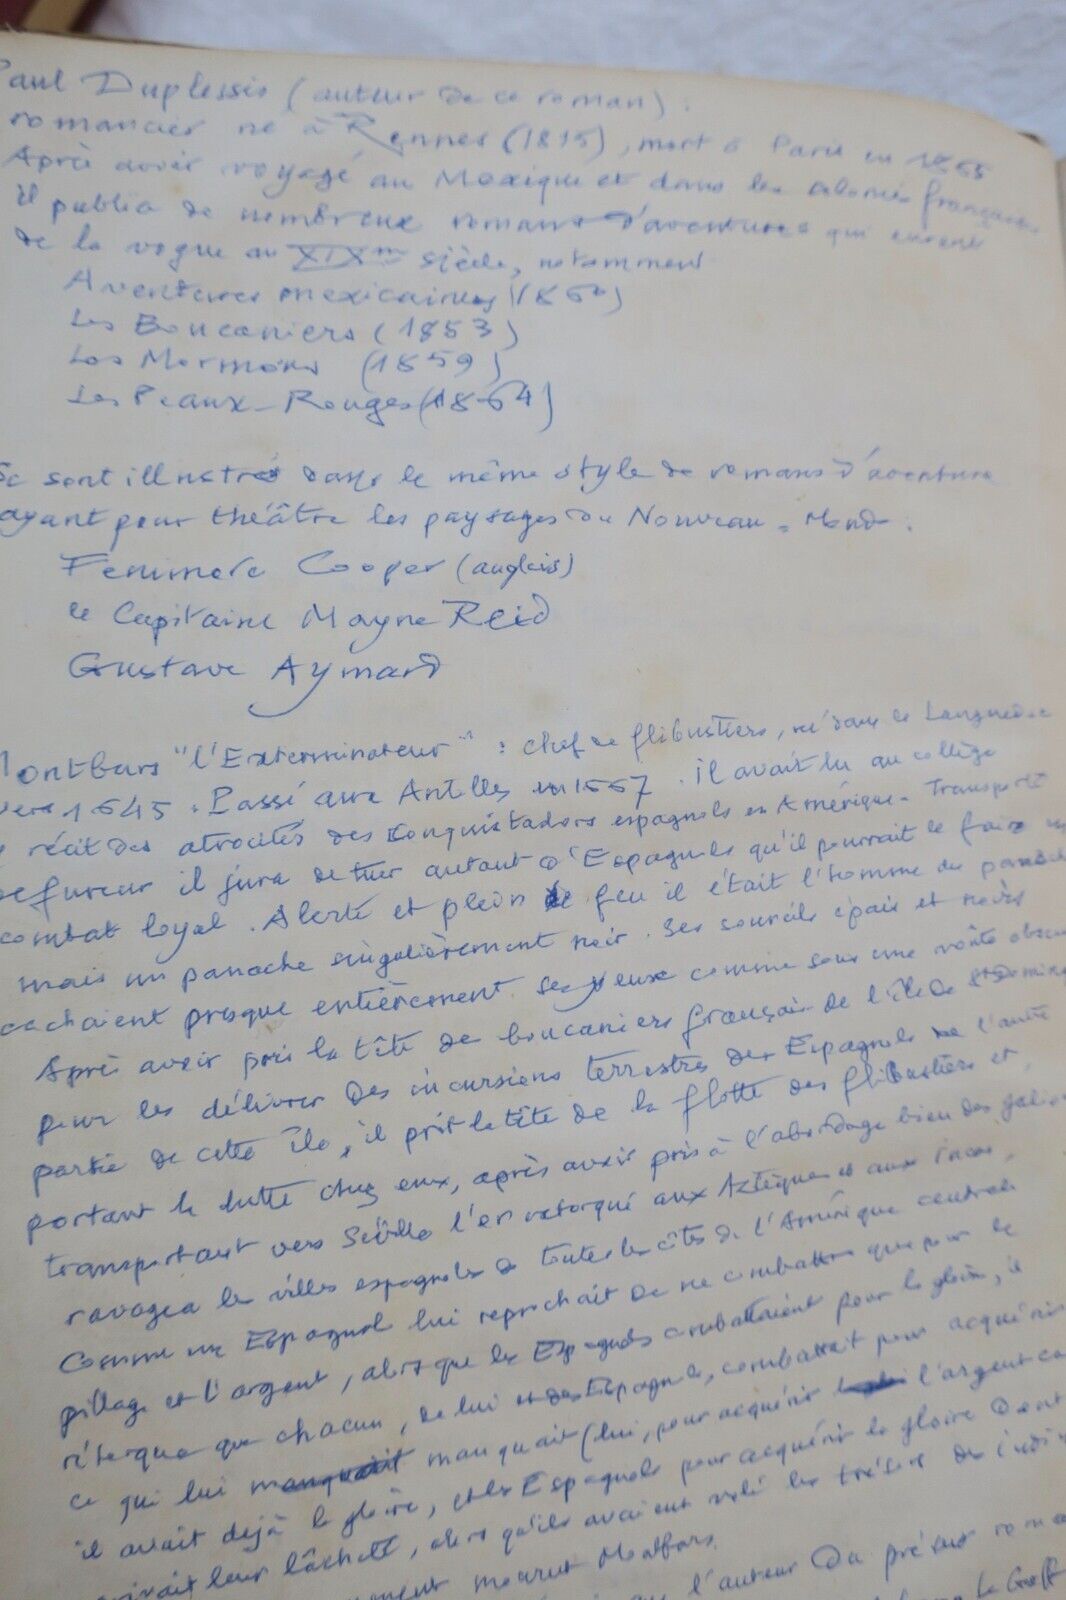 Paul Duplessis (auteur de ce roman) :
romancier né à Rennes (1815), mort à Paris en 1865
Après avoir voyagé au Mexique et dans les colonies françaises
il publia de nombreux romans d'aventures qui eurent
de la vogue au XIXme siècle, notamment
Aventures mexicaines (1860)
Les Boucaniers (1853)
Les Mormons (1859)
Les Peaux-Rouges (1864)
Se sont illustrés dans le même style de romans d'aventure
ayant pour théâtre les paysages du Nouveau-Monde :
Fenimore Cooper (anglais)
le Capitaine Mayne Reid
Gustave Aymard
Montbars "l'Exterminateur" : chef de flibustiers, né dans le Languedoc
vers 1645. Passé aux Antilles en 1667. il avait lu au collège
récit des atrocités des Conquistadors espagnols en Amérique. Transporté
de fureur il jura de tuer autant d'Espagnols qu'il pourrait le faire en
combat loyal. Alerte et plein de feu il était l'homme du panache
mais un panache singulièrement noir. Ses sourcils épais et noirs
cachaient presque entièrement ses yeux comme sous une voûte obscure
Après avoir pris la tête de boucaniers français de l'île de St Domingue
pour les délivrer des incursions terrestres des Espagnols de l'autre
partie de cette île, il prit la tête de la flotte des flibustiers et,
portant la lutte chez eux, après avoir pris à l'abordage bien des galions
transportant vers Séville l'or extorqué aux Aztèques et aux Incas,
ravagea les villes espagnoles de toutes les côtes de l'Amérique centrale
Comme un Espagnol lui reprochait de ne combattre que pour le
pillage et l'argent, alors que les Espagnols combattaient pour la gloire, il
rétorqua que chacun, de lui et des Espagnols, combattait pour acquérir
ce qui lui manquait (lui, pour acquérir l'argent car
il avait déjà la gloire, et les Espagnols pour acquérir la gloire dont
privait leur lâcheté, alors qu'ils avaient volé les trésors des indiens
mourut Montbars.
l'auteur du présent roman